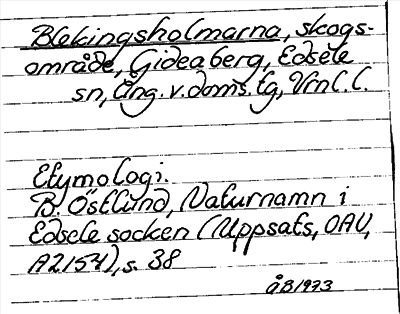 Blekingsholmarna, skogs-
område, Gideåberg, Edsele
sn, Ång. v. doms. tg, Vrnl. l.
Etymologi.
B. Östlund, Naturnamn i
Edsele socken (Uppsats, OAU,
A2154), s. 38
ÅB1973